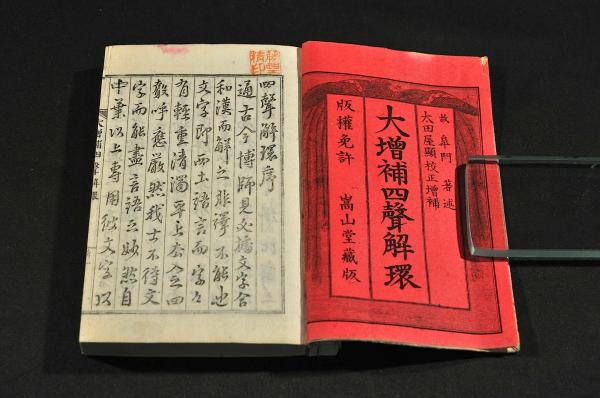 故 皐門 著述
太田屋顯校正增補
大增補四聲解環
版權免許 嵩山堂藏版
四聲解環序
通古今博師見必據文字合
和漢而解之非譯不能也
文字即西土語言而字々
有輕重清濁平上去入之四
聲呼應嚴然我士不待文
字而能盡言語之妙然自
中葉以上專用彼文字以
大增補四聲解環